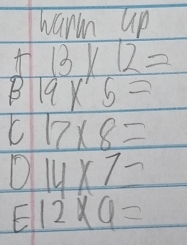 Warm up
A 13 x 12 =
B 19 x 5 =
C 17 x 8 =
D 14 x 7 =
E 12 x 9 =